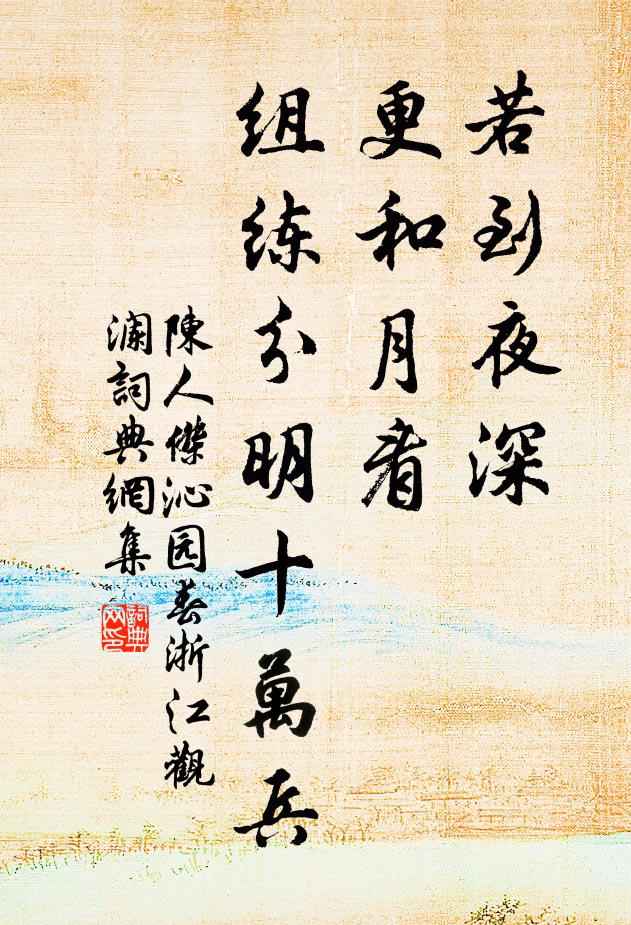 若到夜深
更和月看
组练分明十萬兵
陳人傑沁园春浙江觀
澜詞典網集
詞典网印